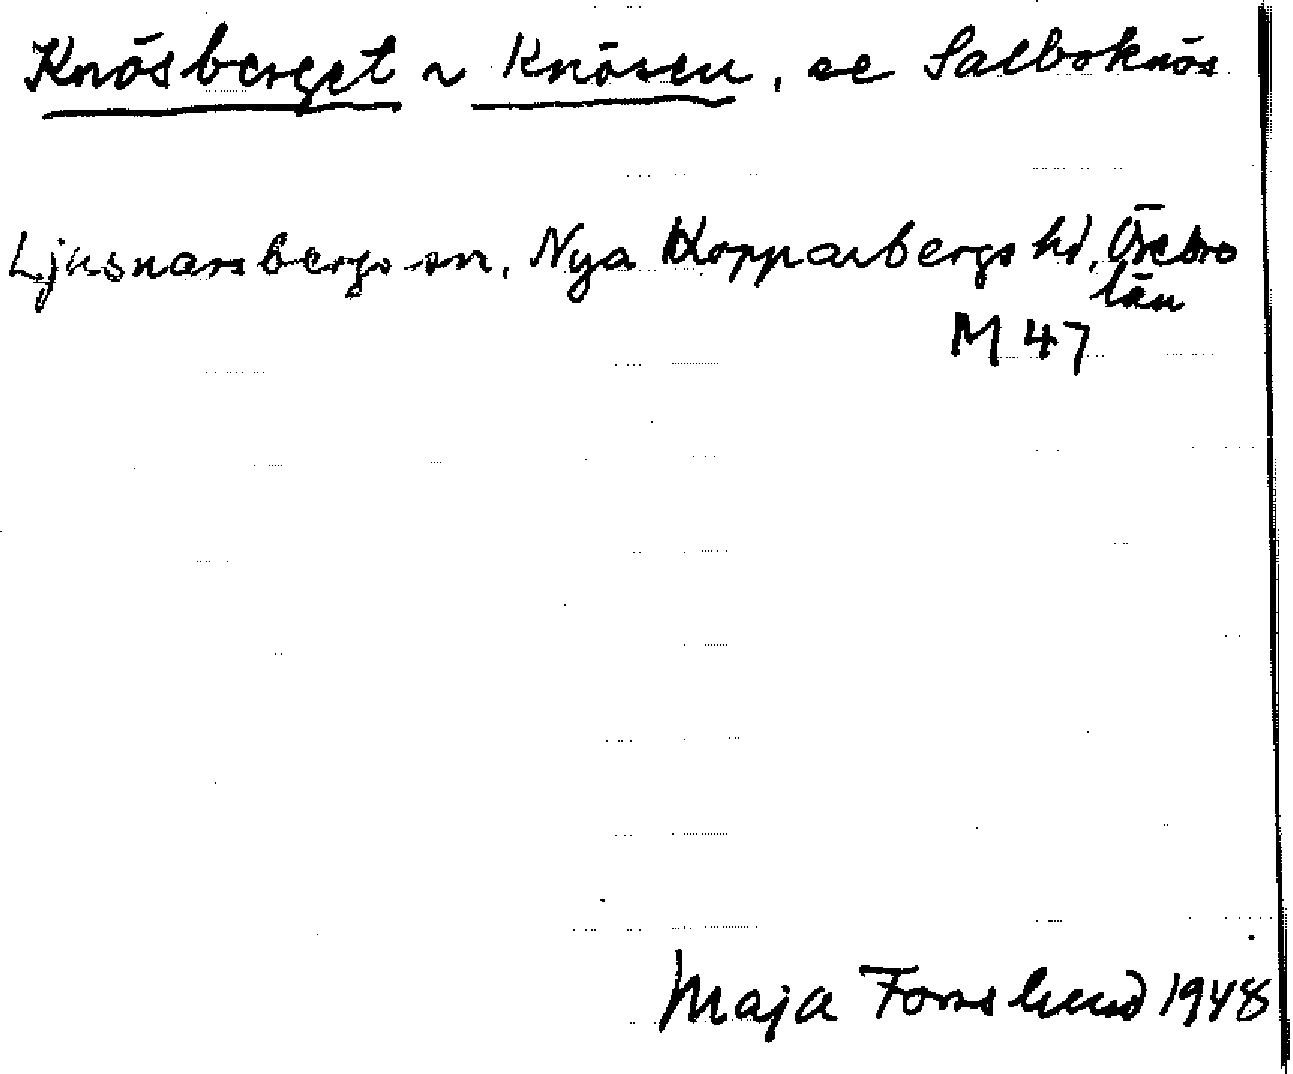 Knösberget ~ Knösen, se Salboknös
Ljusnarsbergs sn, Nya Kopparbergs hd, Örebro
län
M 47
Maja Forsslund 1948